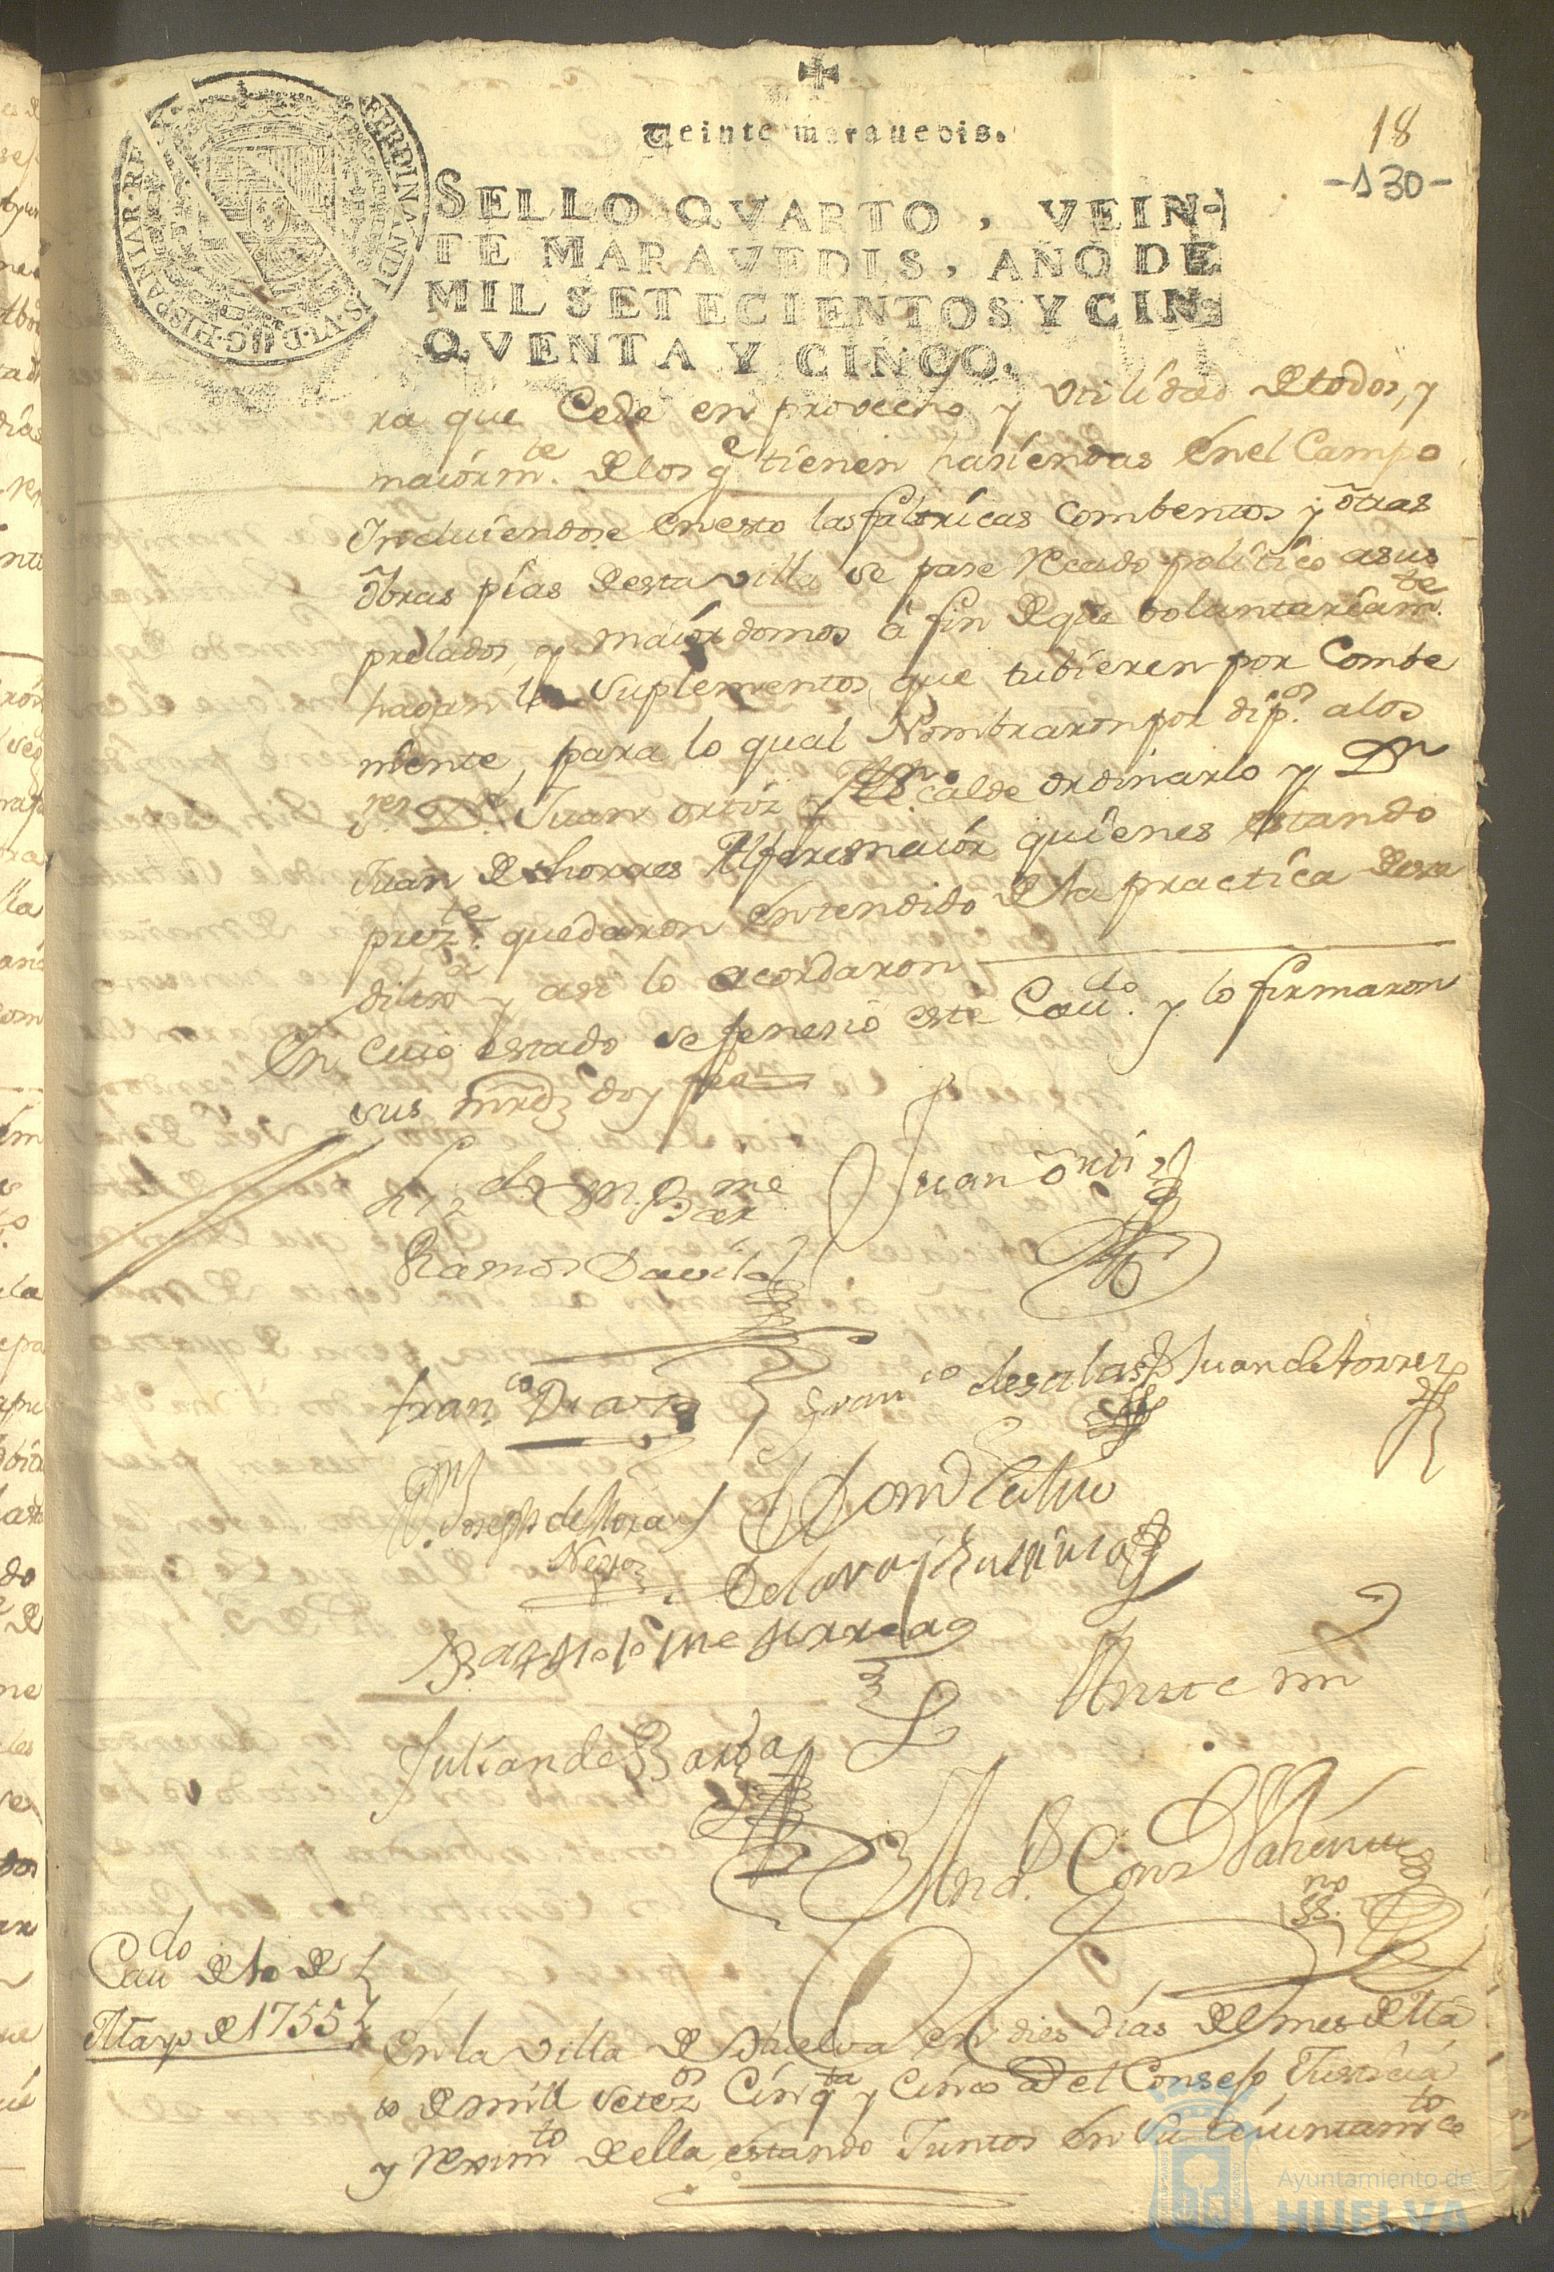 Veinte marauedis.
18
-130-
SELLO QVARTO, VEIN-
TE MARAVEDIS, AÑO DE
MIL SETECIENTOS Y CIN-
QVENTA Y CINCO.
FERDINANDUS·VI·D·G·HISPANIAR·REX
ra que Cede en provecho y vtilidad de todos, y
maiorm.te de los q.e tienen hasiendas en el Campo
Incluiendose en esto las fabricas combentos y otras
obras pias de esta villa se pase recado politico a sus
prelados, y maiordomos â fin de que voluntariam.te
hagan los suplementos que tubieren por Combe
niente, para lo qual Nombraron por dip.os a los
s.res D.n Juan ortiz Alcalde ordinario y D.n
Juan de thorres Alferes maior quienes estando
prez.te quedaron entendido de la practica de esta
dilix.a y asi lo acordaron
En cuio estado se fenesio este Cau.do y lo firmaron
sus mrdz doy fee
Bar.me Juan Ortiz
Ramos Davila
Fran.co Fran.co de salas Juan de torres
D.n Joseph de Mora
Negro
Bartholome
Ante mi
Julian de Barba
Cau.do de 10 de
Mayo de 1755
En la villa de Huelva en dies dias del mes de Ma
io de mill setez.os Cinq.ta y Cinco a el Consejo Justicia
y reximi.to de ella estando Juntos en su aiuntam.to
Ayuntamiento de
HUELVA